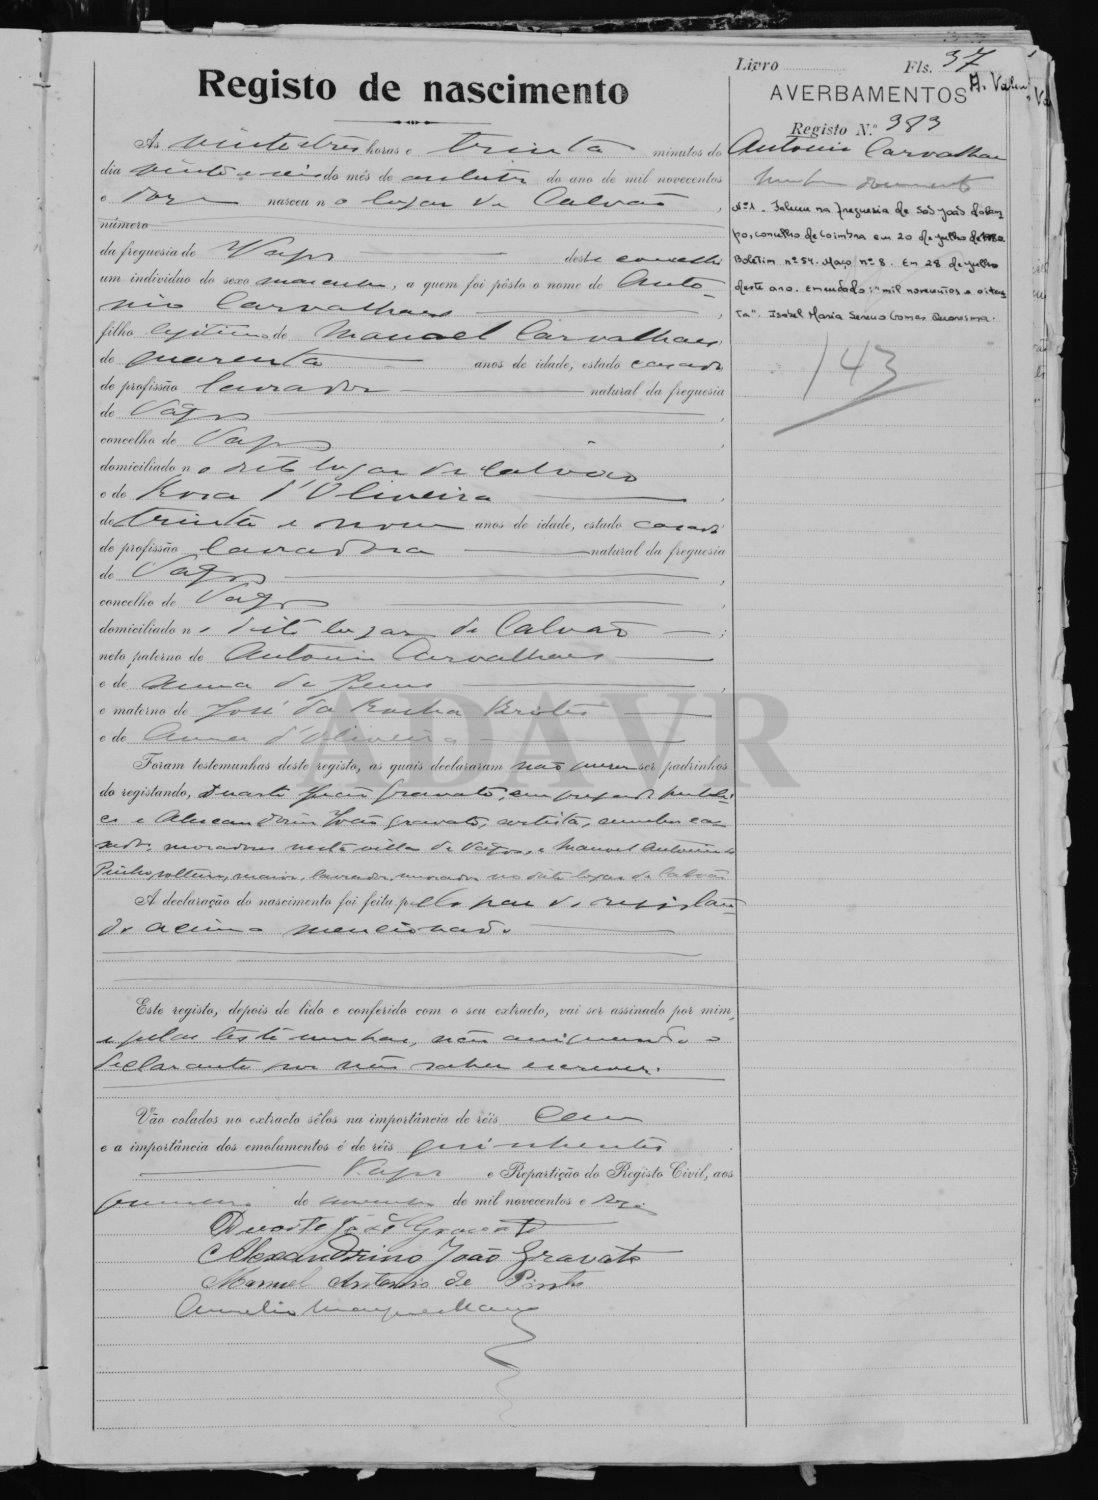 Livro Fls. 37
Registo de nascimento
AVERBAMENTOS
Registo N.º 383
Às vinte e três horas e trinta minutos do
dia vinte e seis do mês de outubro do ano de mil novecentos
e doze nasceu n o lugar de Calvão,
número
da freguesia de Vagos deste concelho
um indivíduo do sexo masculino, a quem foi pôsto o nome de Antó-
nio Carvalhaes
filho legitimo de Manoel Carvalhaes,
de quarenta anos de idade, estado casado
de profissão lavrador natural da freguesia
de Vagos,
concelho de Vagos,
domiciliado n o dito lugar de Calvão
e de Rosa d'Oliveira,
de trinta e nove anos de idade, estado casada
de profissão lavradora natural da freguesia
de Vagos,
concelho de Vagos,
domiciliado n o dito lugar de Calvão;
neto paterno de António Carvalhaes
e de Anna de Jesus,
e materno de José da Rocha Brites
e de Anna d'Oliveira
Foram testemunhas deste registo, as quais declararam não querer ser padrinhos
do registando, Duarte José Gravato, empregado publi-
co e Alexandrino João Gravato, artista, ambos ca-
sados moradores nesta villa de Vagos, e Manuel António de
Pinho, solteiro, maior, lavrador, morador no dito lugar de Calvão
A declaração do nascimento foi feita pello pae do registan-
do acima mencionado
Este registo, depois de lido e conferido com o seu extracto, vai ser assinado por mim,
e pelas testemunhas, não assignando o
declarante por não saber escrever.
Vão colados no extracto sêlos na importância de réis cem
e a importância dos emolumentos é de réis quinhentos
Vagos e Repartição do Registo Civil, aos
primeiro de novembro de mil novecentos e doze
Duarte José Gravato
Alexandrino João Gravato
Manuel Antonio de Pinho
António Carvalhaes
Nº1. Faleceu na freguesia de São João do Cam-
po, concelho de Coimbra em 20 de julho de 1980.
Boletim nº 54. Maço nº 8. Em 28 de julho
deste ano. Emendado: "mil novecentos e oiten-
ta". Isabel Maria Sereno Gomes Quaresma.
143
ADAVR